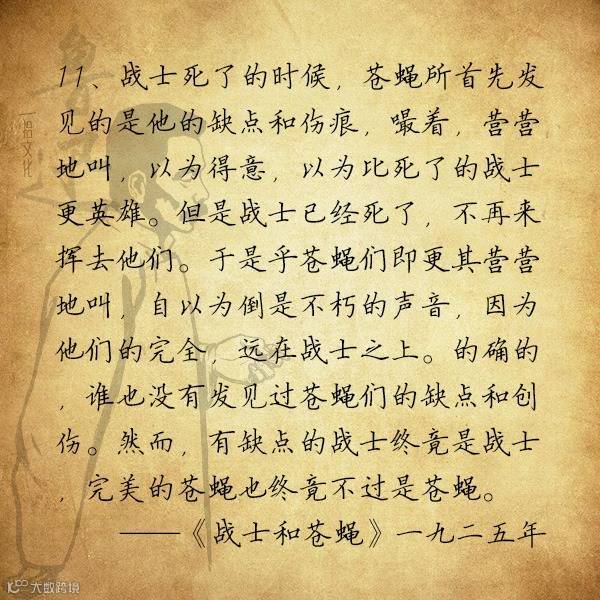 11、战士死了的时候，苍蝇所首先发
见的是他的缺点和伤痕，嘬着，营营
地叫，以为得意，以为比死了的战士
更英雄。但是战士已经死了，不再来
挥去他们。于是乎苍蝇们即更其营营
地叫，自以为倒是不朽的声音，因为
他们的完全，远在战士之上。的确的
，谁也没有发见过苍蝇们的缺点和创
伤。然而，有缺点的战士终竟是战士
，完美的苍蝇也终竟不过是苍蝇。
——《战士和苍蝇》一九二五年
大数跨境